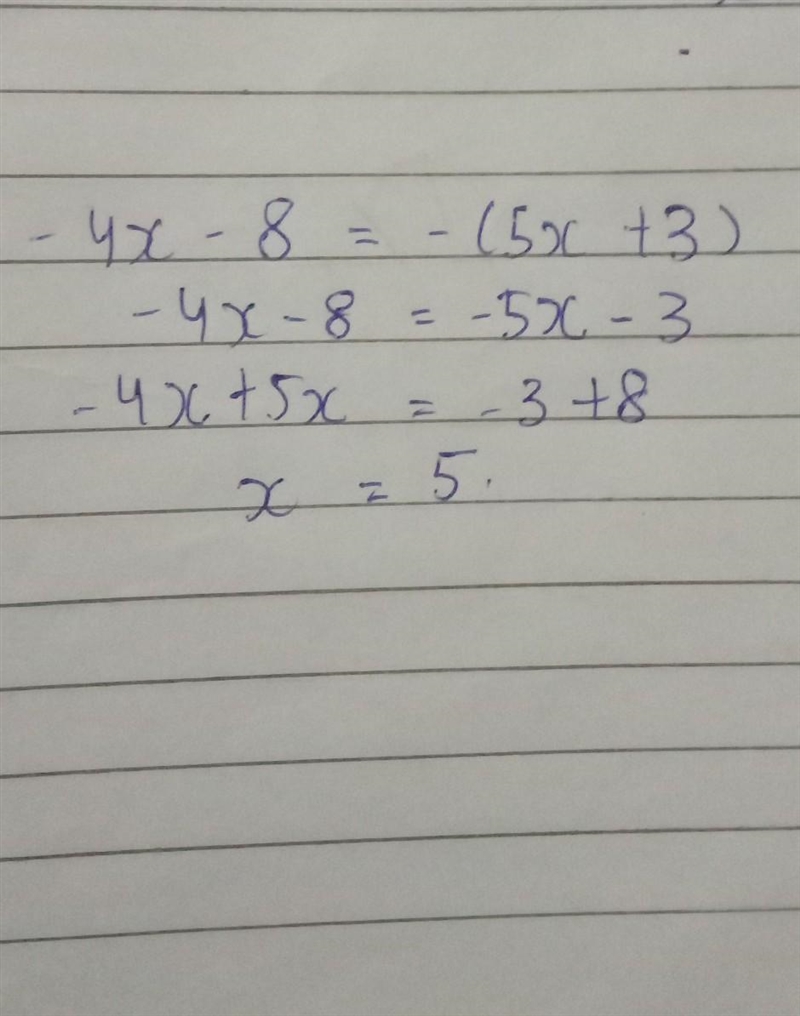 - 4x - 8 = - (5x + 3)
- 4x - 8 = - 5x - 3
- 4x + 5x = - 3 + 8
x = 5.